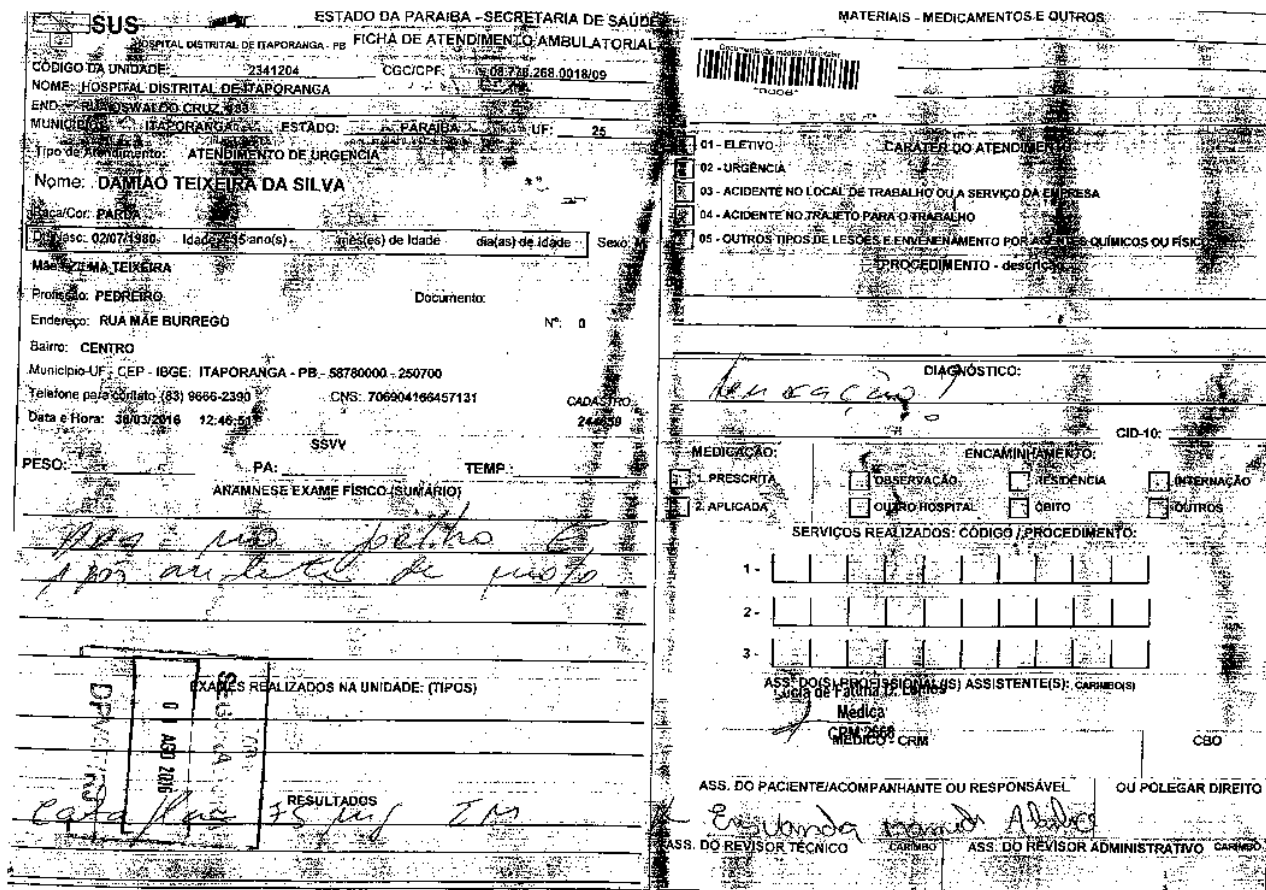 SUS
ESTADO DA PARAIBA - SECRETARIA DE SAÚDE
HOSPITAL DISTRITAL DE ITAPORANGA - PB
FICHA DE ATENDIMENTO AMBULATORIAL
CÓDIGO DA UNIDADE: 2341204 CGC/CPF: 08.778.268.0018/09
NOME: HOSPITAL DISTRITAL DE ITAPORANGA
END: RUA OSWALDO CRUZ
MUNICÍPIO: ITAPORANGA ESTADO: PARAIBA UF: 25
Tipo de Atendimento: ATENDIMENTO DE URGENCIA
Nome: DAMIAO TEIXEIRA DA SILVA
Raca/Cor: PARDA
Dt Nasc: 02/07/1980 Idade: 35 ano(s) mês(es) de Idade dia(as) de Idade Sexo: M
Mãe: TEIXEIRA
Profissão: PEDREIRO Documento:
Endereço: RUA MÃE BURREGO Nº: 0
Bairro: CENTRO
Municipio-UF - CEP - IBGE: ITAPORANGA - PB - 58780000 - 250700
Telefone para contato: (83) 9666-2390 CNS: 706904166457131 CADASTRO
Data e Hora: 30/03/2016 12:46:51 244659
SSVV
PESO: PA: TEMP.:
ANAMNESE EXAME FÍSICO (SUMÁRIO)
após de moto
EXAMES REALIZADOS NA UNIDADE: (TIPOS)
0 1 AGO 2016
RESULTADOS
75 mg IM
MATERIAIS - MEDICAMENTOS E OUTROS
CARÁTER DO ATENDIMENTO
01 - ELETIVO
02 - URGÊNCIA
03 - ACIDENTE NO LOCAL DE TRABALHO OU A SERVIÇO DA EMPRESA
04 - ACIDENTE NO TRAJETO PARA O TRABALHO
05 - OUTROS TIPOS DE LESÕES E ENVENENAMENTO POR AGENTES QUÍMICOS OU FÍSIC
PROCEDIMENTO - descrição
DIAGNÓSTICO:
CID-10:
MEDICAÇÃO: ENCAMINHAMENTO:
1. PRESCRITA OBSERVAÇÃO RESIDÊNCIA INTERNAÇÃO
2. APLICADA OUTRO HOSPITAL ÓBITO OUTROS
SERVIÇOS REALIZADOS: CÓDIGO / PROCEDIMENTO:
1 -
2 -
3 -
ASS. DO(S) PROFISSIONAL(IS) ASSISTENTE(S): CARIMBO(S)
Lucia de Fatima D. Lemos
Medica
CRM 2668
MÉDICO - CRM CBO
ASS. DO PACIENTE/ACOMPANHANTE OU RESPONSÁVEL OU POLEGAR DIREITO
ASS. DO REVISOR TÉCNICO CARIMBO ASS. DO REVISOR ADMINISTRATIVO CARIMBO